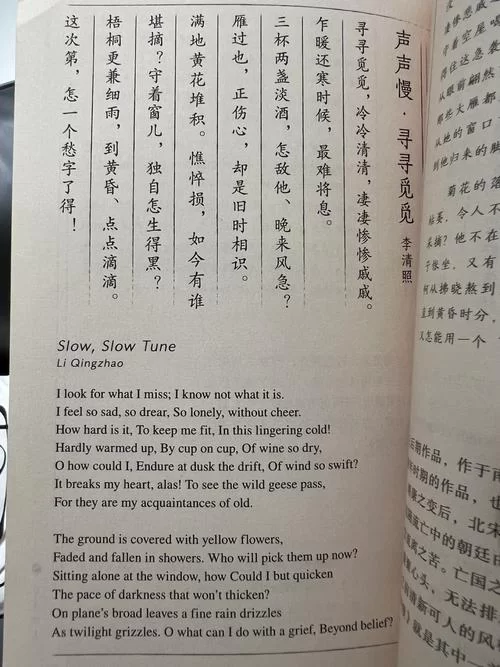 声声慢·寻寻觅觅 李清照
寻寻觅觅，冷冷清清，凄凄惨惨戚戚。
乍暖还寒时候，最难将息。
三杯两盏淡酒，怎敌他、晚来风急？
雁过也，正伤心，却是旧时相识。
满地黄花堆积。憔悴损，如今有谁
堪摘？守着窗儿，独自怎生得黑？
梧桐更兼细雨，到黄昏、点点滴滴。
这次第，怎一个愁字了得！
Slow, Slow Tune
Li Qingzhao
I look for what I miss; I know not what it is.
I feel so sad, so drear, So lonely, without cheer.
How hard is it, To keep me fit, In this lingering cold!
Hardly warmed up, By cup on cup, Of wine so dry,
O how could I, Endure at dusk the drift, Of wind so swift?
It breaks my heart, alas! To see the wild geese pass,
For they are my acquaintances of old.
The ground is covered with yellow flowers,
Faded and fallen in showers. Who will pick them up now?
Sitting alone at the window, how Could I but quicken
The pace of darkness that won't thicken?
On plane's broad leaves a fine rain drizzles
As twilight grizzles. O what can I do with a grief, Beyond belief?
那些大雁都
从她的窗口
到他归来的脚
菊花的落
枯萎。令人不
未摘？他不在
于张坐，又有
何从拂晓熬到
直到黄昏时分，
又怎能用一个
后期作品，作于南
时期的作品，也
康之变后，北宋
流亡中的朝廷
离之苦。亡国之
心头、无法排
清新可人的风
就是其中一